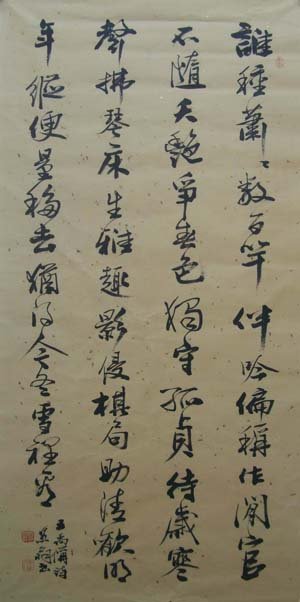 誰種蕭〻數百竿伴吟偏稱作閑官
不隨夭艷爭春色獨守孤貞待歲寒
聲拂琴床生雅趣影侵棋局助清歡明
年縱便量移去猶得今冬雪裡看
王禹偁詩